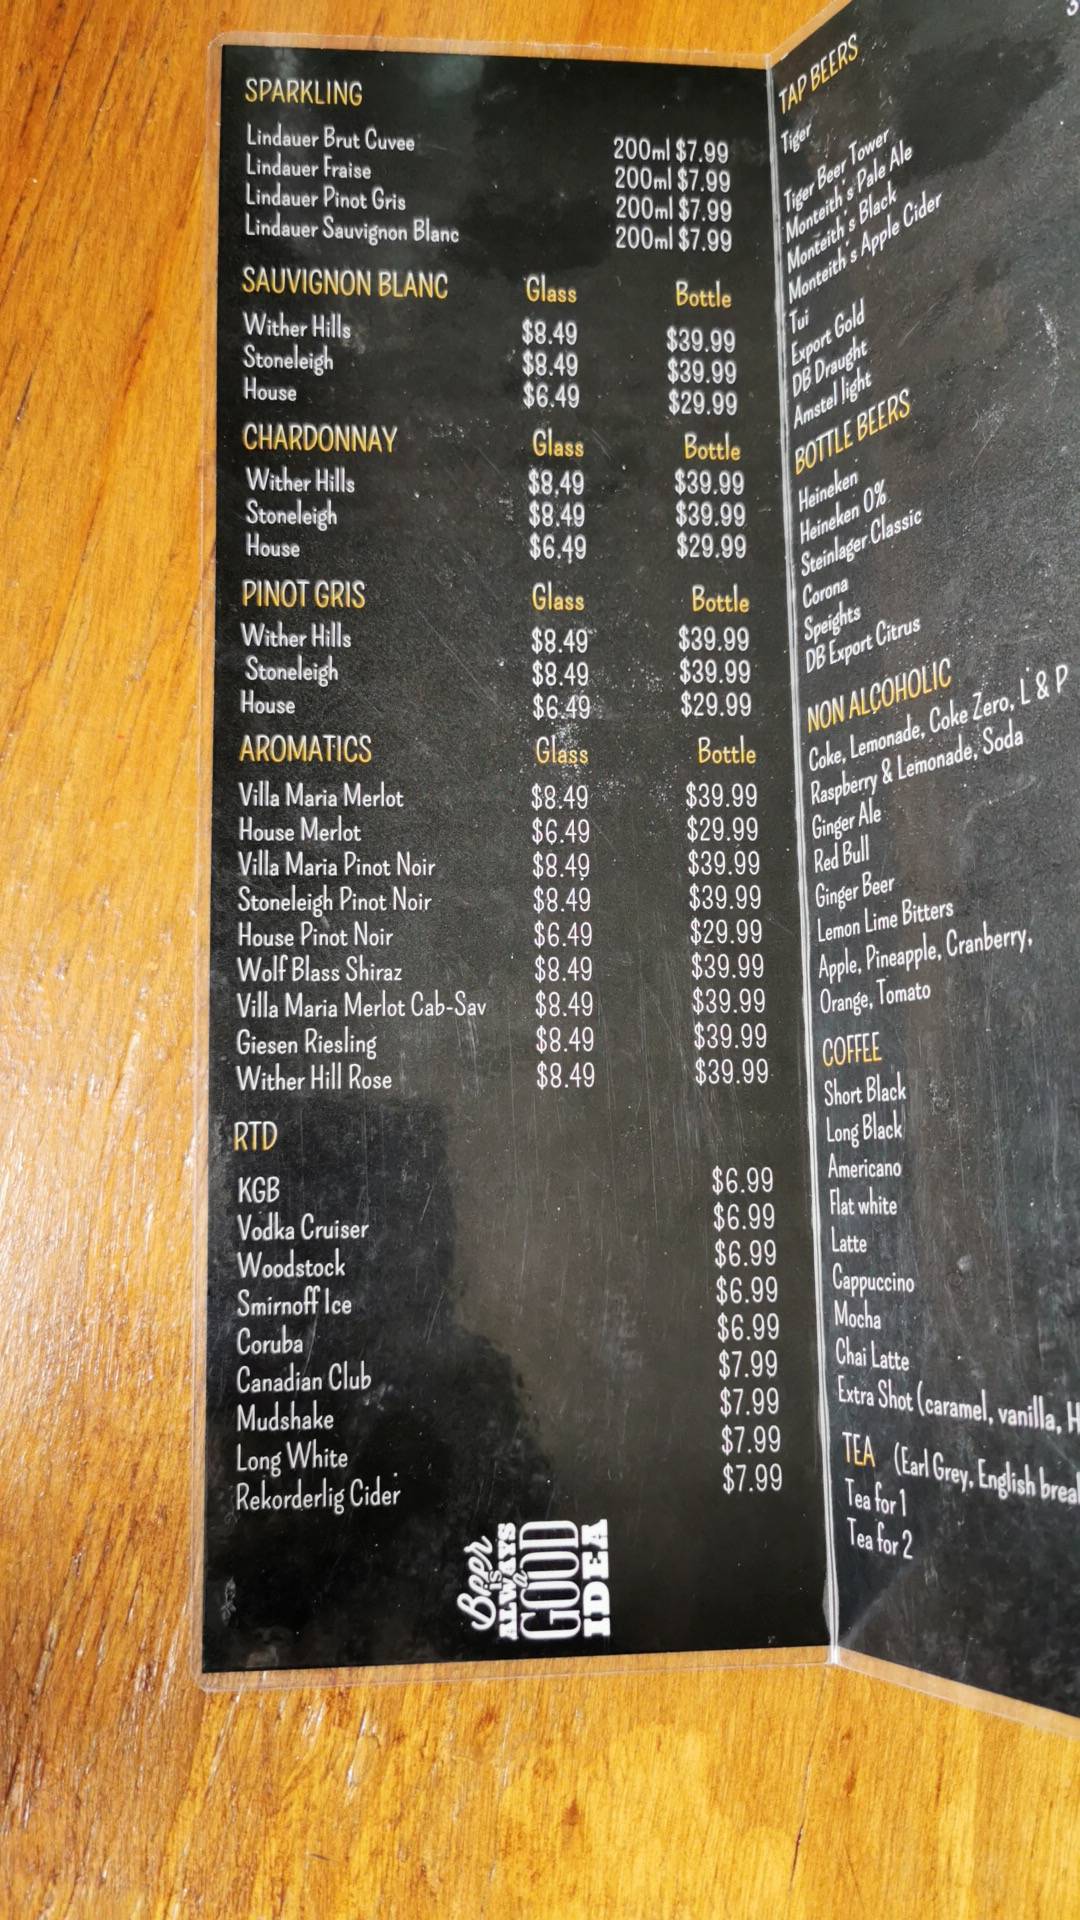 SPARKLING
Lindauer Brut Cuvee 200ml $7.99
Lindauer Fraise 200ml $7.99
Lindauer Pinot Gris 200ml $7.99
Lindauer Sauvignon Blanc 200ml $7.99
SAUVIGNON BLANC Glass Bottle
Wither Hills $8.49 $39.99
Stoneleigh $8.49 $39.99
House $6.49 $29.99
CHARDONNAY Glass Bottle
Wither Hills $8.49 $39.99
Stoneleigh $8.49 $39.99
House $6.49 $29.99
PINOT GRIS Glass Bottle
Wither Hills $8.49 $39.99
Stoneleigh $8.49 $39.99
House $6.49 $29.99
AROMATICS Glass Bottle
Villa Maria Merlot $8.49 $39.99
House Merlot $6.49 $29.99
Villa Maria Pinot Noir $8.49 $39.99
Stoneleigh Pinot Noir $8.49 $39.99
House Pinot Noir $6.49 $29.99
Wolf Blass Shiraz $8.49 $39.99
Villa Maria Merlot Cab-Sav $8.49 $39.99
Giesen Riesling $8.49 $39.99
Wither Hill Rose $8.49 $39.99
RTD
KGB $6.99
Vodka Cruiser $6.99
Woodstock $6.99
Smirnoff Ice $6.99
Coruba $6.99
Canadian Club $7.99
Mudshake $7.99
Long White $7.99
Rekorderlig Cider $7.99
Beer
IS
ALWAYS
a
GOOD
IDEA
TAP BEERS
Tiger
Tiger Beer Tower
Monteith's Pale Ale
Monteith's Black
Monteith's Apple Cider
Tui
Export Gold
DB Draught
Amstel light
BOTTLE BEERS
Heineken
Heineken 0%
Steinlager Classic
Corona
Speights
DB Export Citrus
NON ALCOHOLIC
Coke, Lemonade, Coke Zero, L & P
Raspberry & Lemonade, Soda
Ginger Ale
Red Bull
Ginger Beer
Lemon Lime Bitters
Apple, Pineapple, Cranberry,
Orange, Tomato
COFFEE
Short Black
Long Black
Americano
Flat white
Latte
Cappuccino
Mocha
Chai Latte
Extra Shot (caramel, vanilla, H
TEA (Earl Grey, English brea
Tea for 1
Tea for 2